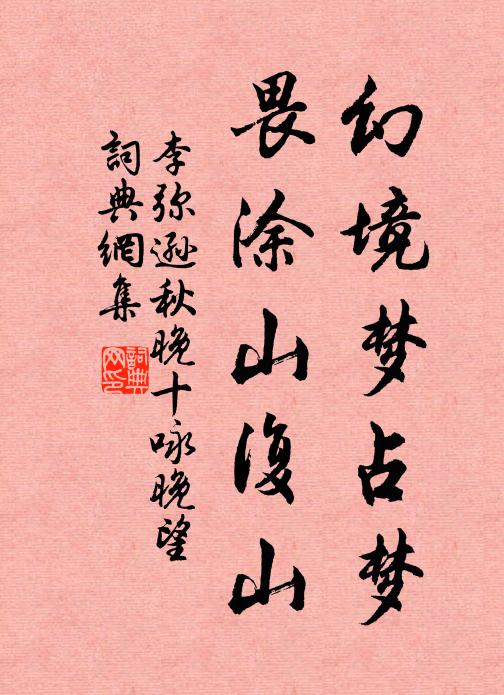 幻境梦占梦
畏涂山復山
李弥遜秋晚十咏晚望
詞典網集
詞典網印